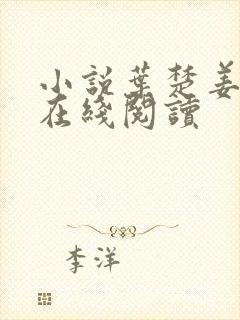 小說葉楚姜
在綫閱讀
李洋